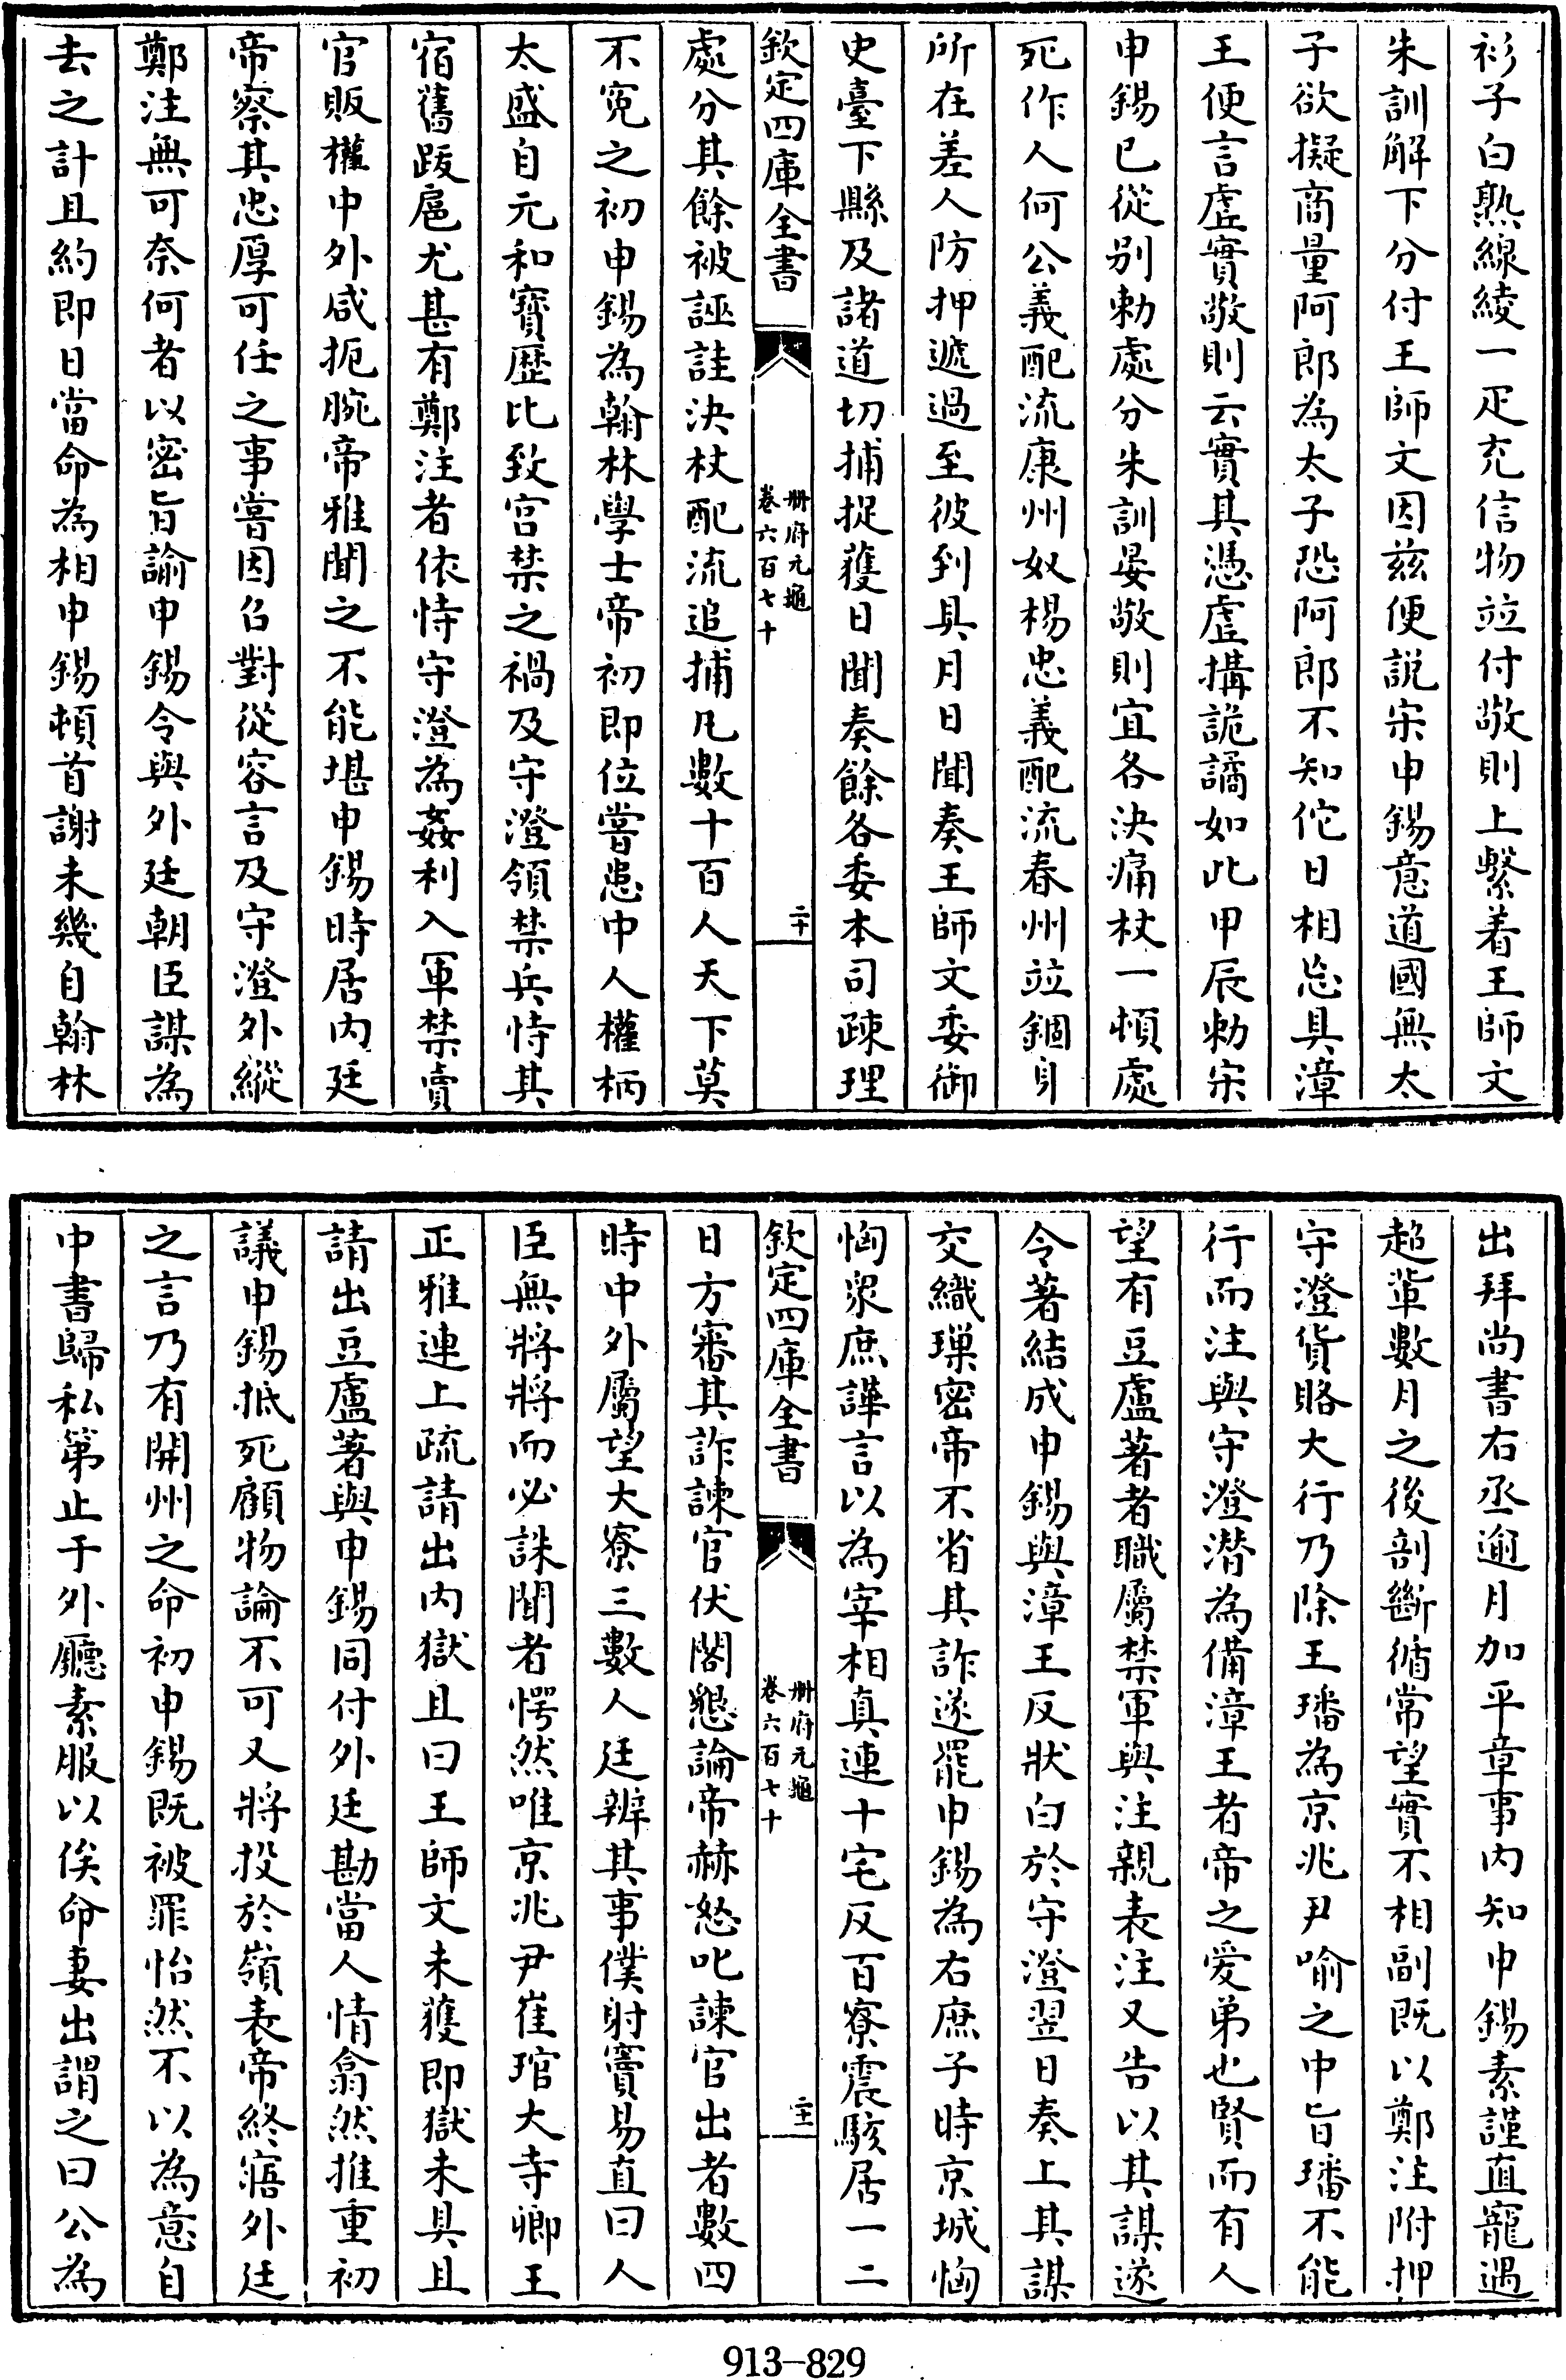 衫子白熟線綾一疋充信物竝付敬則上繫着王師文
朱訓解下分付王師文因兹便説宋申錫意道國無太
子欲擬商量阿郎為太子恐阿郎不知佗日相忘具漳
王便言虛實敬則云實其憑虛搆詭譎如此甲辰勅宋
申錫已從别勅處分朱訓晏敬則宜各決痛杖一頓處
死作人何公義配流康州奴楊忠義配流春州竝錮身
所在差人防押遞過至彼到具月日聞奏王師文委御
史臺下縣及諸道切捕捉獲日聞奏餘各委本司疎理
欽定四庫全書
册府元龜
卷六百七十
二十
處分其餘被誣註決杖配流追捕凡數十百人天下莫
不寃之初申錫為翰林學士帝初即位嘗患中人權柄
太盛自元和寶歷比致宫禁之禍及守澄領禁兵恃其
宿舊跋扈尤甚有鄭注者依恃守澄為姦利入軍禁賣
官販權中外咸扼腕帝雅聞之不能堪申錫時居内廷
帝察其忠厚可任之事嘗因召對從容言及守澄外縱
鄭注無可奈何者以密旨諭申錫令與外廷朝臣謀為
去之計且約即日當命為相申錫頓首謝未幾自翰林
出拜尚書右丞逾月加平章事内知申錫素謹直寵遇
超輩數月之後剖斷循常望實不相副既以鄭注附押
守澄貨賂大行乃除王璠為京兆尹喻之中旨璠不能
行而注與守澄潛為備漳王者帝之愛弟也賢而有人
望有豆盧著者職屬禁軍與注親表注又告以其謀遂
令著結成申錫與漳王反狀白於守澄翌日奏上其謀
交織璅密帝不省其詐遂罷申錫為右庶子時京城恟
恟衆庶譁言以為宰相真連十宅反百寮震駭居一二
欽定四庫全書
册府元龜
卷六百七十
二十一
日方審其詐諫官伏閤懇論帝赫怒叱諫官出者數四
時中外屬望大寮三數人廷辨其事僕射竇易直曰人
臣無將將而必誅聞者愕然唯京兆尹崔琯大寺卿王
正雅連上疏請出内獄且曰王師文未獲即獄未具且
請出豆盧著與申錫同付外廷勘當人情翕然推重初
議申錫抵死顧物論不可又將投於嶺表帝終寤外廷
之言乃有開州之命初申錫既被罪怡然不以為意自
中書歸私第止于外廳素服以俟命妻出謂之曰公為
913-829